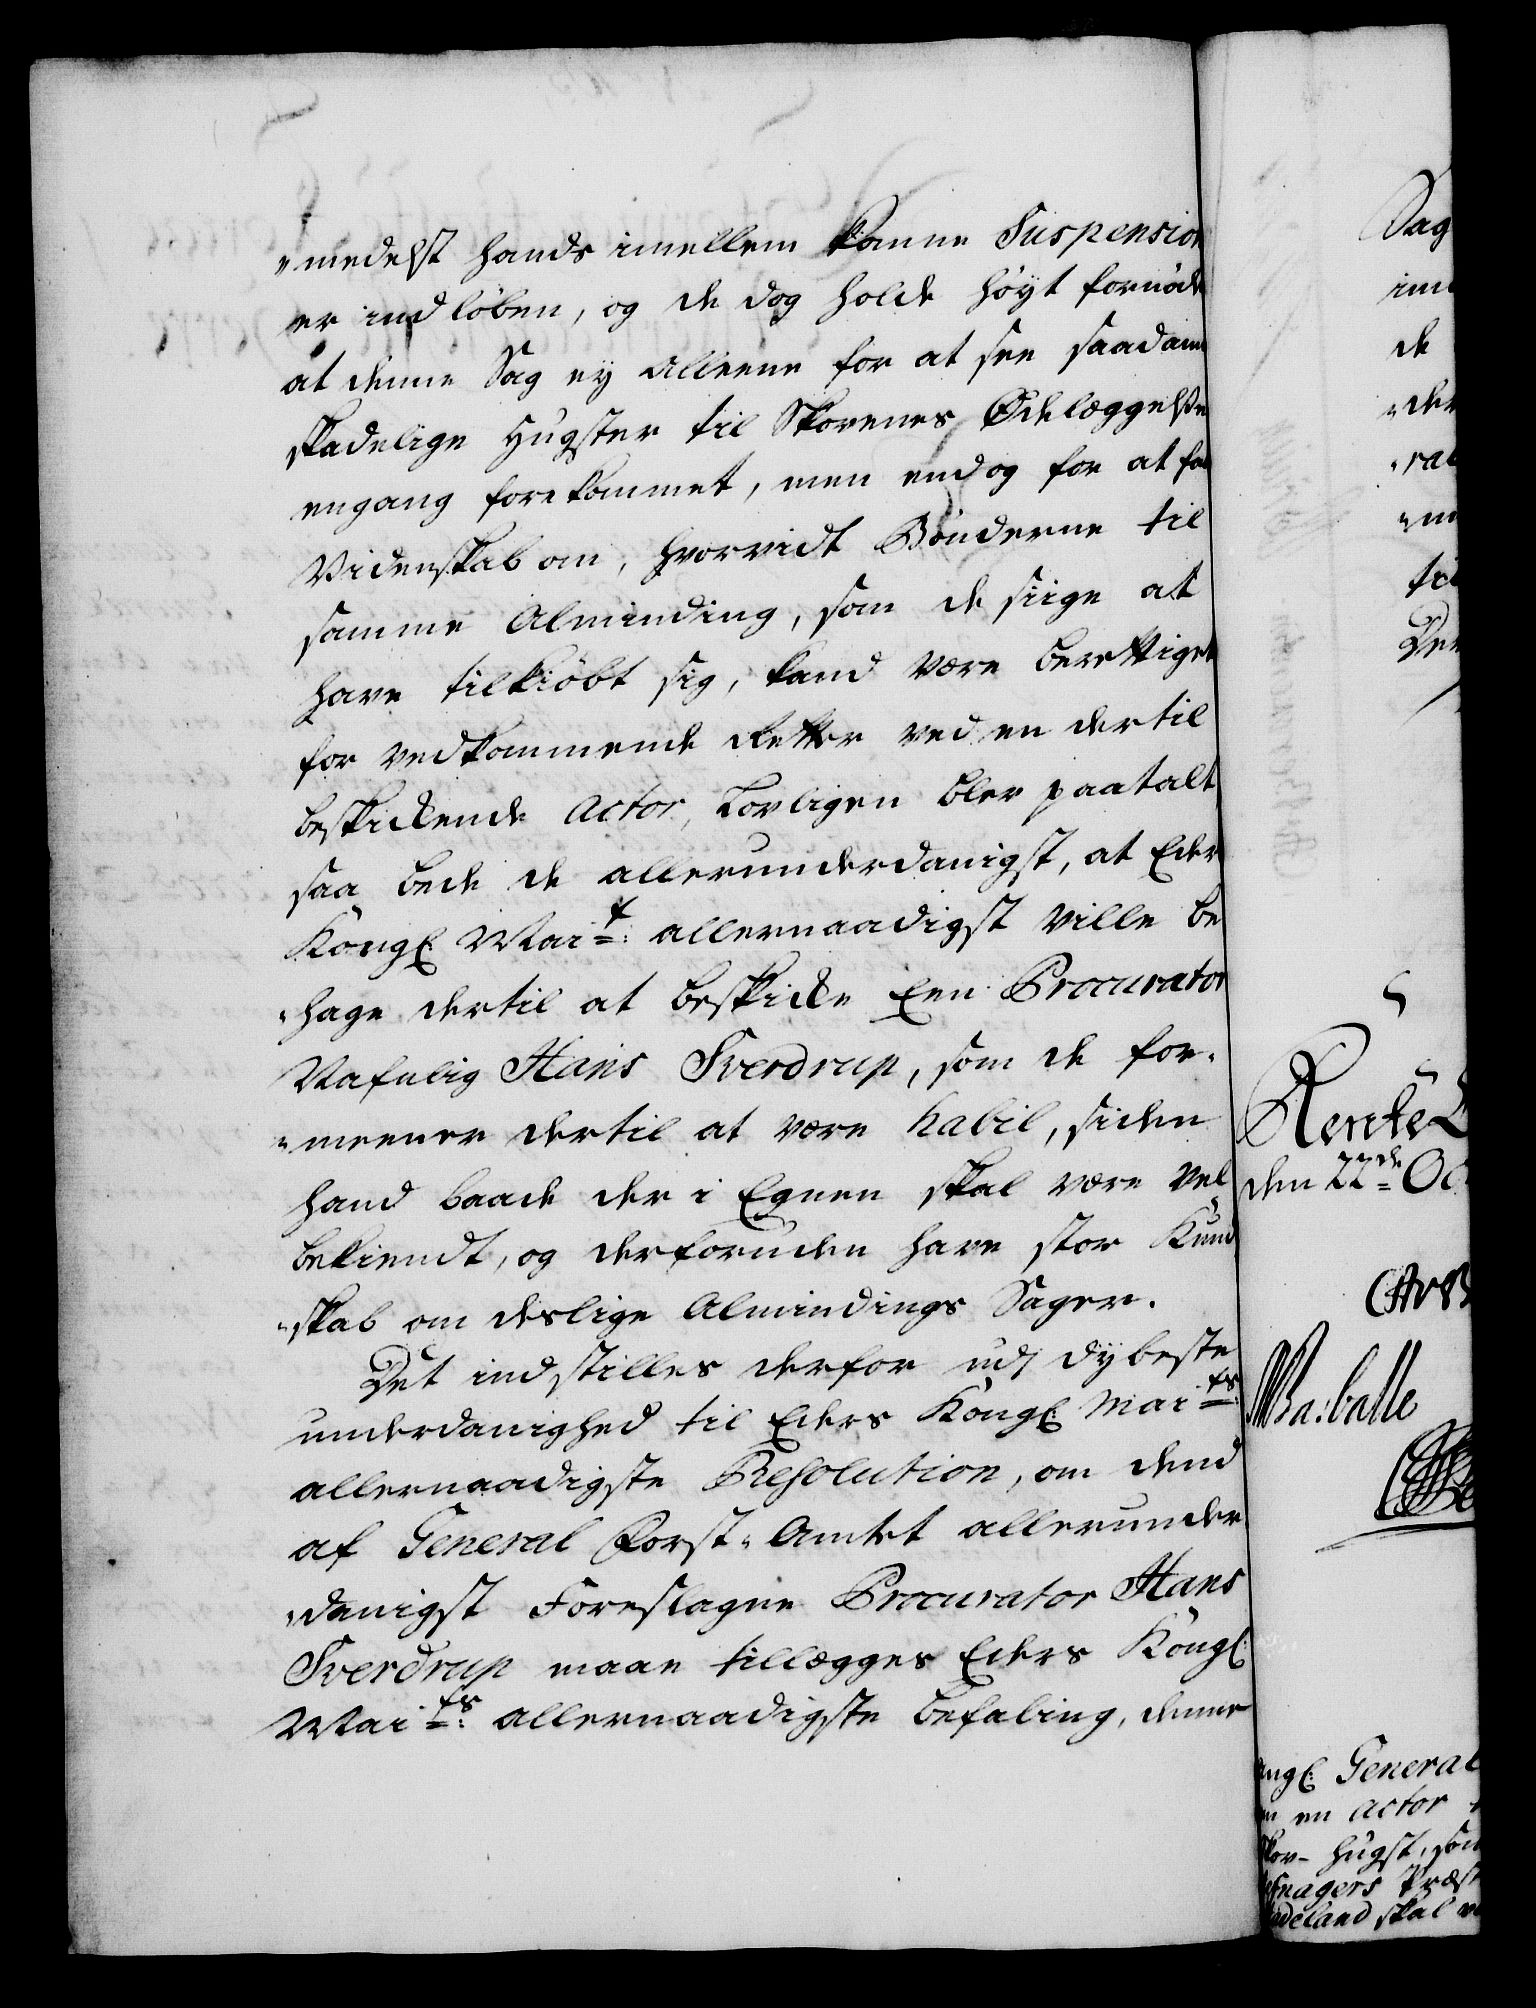 "medelst hands imellem komne Suspension
er indløben, og de dog holde høyt fornøde
at denne Sag ey alleene for at see saadann
skadelige Hugster til Skovenes Ødelæggelse
engang forekommet, men endog for at faa
Videnskab om, hvorvidt Bønderne til
samme Alminding, som de siige at
have tilkiøbt sig, kand være berettiget
for vedkommende Retter ved en dertil
beskickende Actor, Lovligen blev paatalt
saa bede de allerunderdanigst, at Eder
Kongl: Mai=t: allernaadigst ville be
"hage dertil at beskicke Een Procurator
Nafnlig Hans Sverdrup, som de for"
"meener dertil at være habil, siden
hand baade der i Egnen skal være vel
bekiendt, og derforuden have stor Kund
"skab om deslige Almindings Sager.
Det indstilles derfor udj dybeste
underdanighed til Eders Kongl: Mai=ts:
allernaadigste Resolution, om dend
af General Forst-Amtet allerunder
"danigst Foreslagne Procurator Hans
Sverdrup maae tillægges Eders Kongl:
Mai=ts: allernaadigste befaling, denne
Sag
de
Rente
den 22de Oc
Barballe
ngl: General
en Actor
Skov-Hugst, som
Præst
deland skal